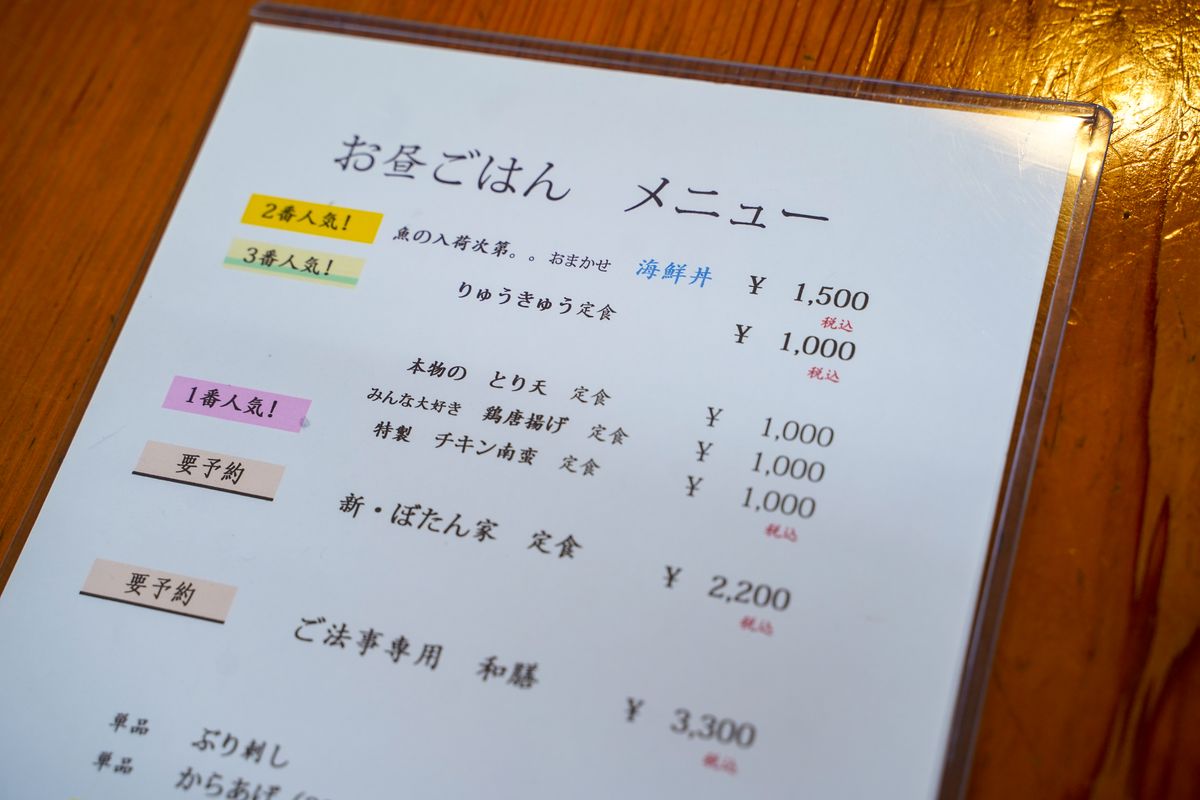 お昼ごはん　メニュー
2番人気！ 魚の入荷次第。。おまかせ 海鮮丼 ¥ 1,500
税込
3番人気！ りゅうきゅう定食 ¥ 1,000
税込
本物の とり天 定食 ¥ 1,000
1番人気！ みんな大好き 鶏唐揚げ 定食 ¥ 1,000
特製 チキン南蛮 定食 ¥ 1,000
税込
要予約 新・ぼたん家 定食 ¥ 2,200
税込
要予約 ご法事専用 和膳 ¥ 3,300
税込
単品 ぶり刺し
単品 からあげ